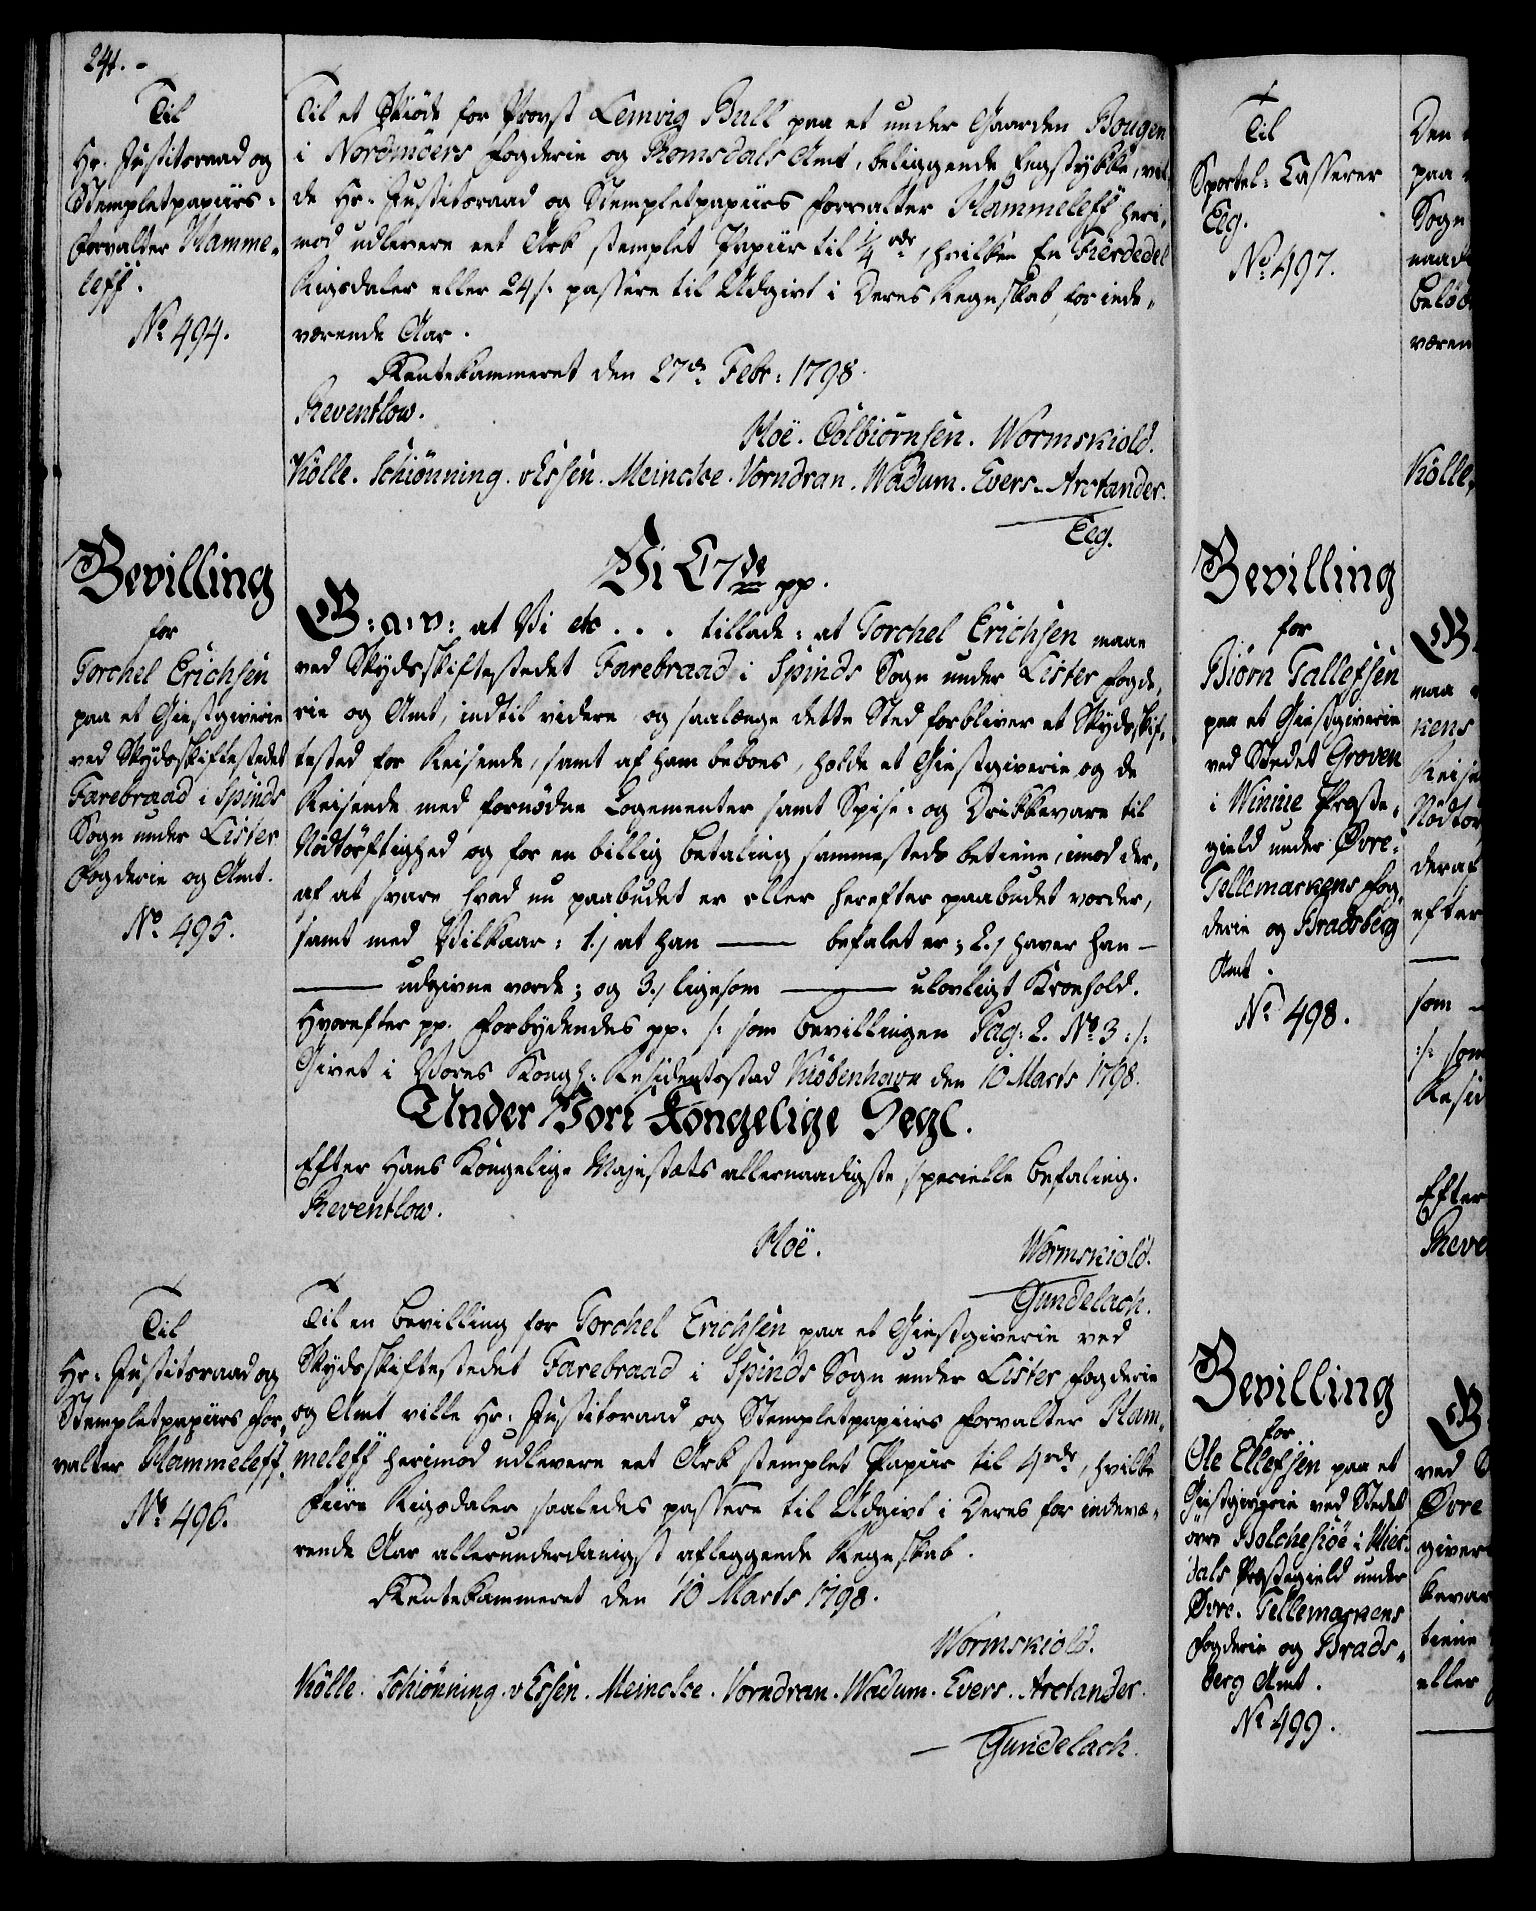 241.-
Til
Hr. Justitsraad og
Stempletpapiirs-
Forvalter Hamme-
leff.
No 494.
Til et Skiöde for Provst Lemvig Bull paa et under Gaarden Bougen
i Nordmöers Fogderie og Romsdals Amt, beliggende Engstykke, vil-
de Hr. Justitsraad og Stempletpapiirs Forvalter Hammeleff heri-
mod udlevere eet Ark stemplet Papiir til 1/4 rdr, hvilken En Fierdedel
Rigsdaler eller 24 s. passere til Udgivt i Deres Regnskab for inde-
værende Aar.
Rentekammeret den 27de Febr: 1798.
Reventlow.
Hoë. Colbiörnsen. Wormskiold.
Kölle. Schiönning. v Essen. Meincke. Vorndran. Wadum. Evers. Arctander.
Eeg.
Bevilling
for
Torchel Erichsen
paa et Giestgiverie
ved Skydsskiftestedet
Farebraad i Spinds
Sogn under Lister
Fogderie og Amt.
No 495.
Vi C7de pp.
G: a: v: at Vi etc . . . tillade: at Torchel Erichsen maae
ved Skydsskiftestedet Farebraad i Spinds Sogn under Lister Fogde-
rie og Amt, indtil videre og saalænge dette Sted forbliver et Skydsskif-
tested for Reisende, samt af ham beboes, holde et Giestgiverie og de
Reisende med fornødne Logementer samt Spise- og Drikkevare til
Nödtörftighed og for en billig Betaling sammesteds betiene, imod der-
af at svare hvad nu paabudet er eller herefter paabudet vorder,
samt med Vilkaar: 1.) at han —— befalet er; 2.) haver han —
—— udgivne vorde; og 3.) ligesom —— ulovligt Kroehold.
Hvorefter pp. Forbydendes pp. /: som Bevillingen Pag: 2. No 3 :/:
Givet i Vores Kongl: Residentsstad Kiöbenhavn den 10 Marts 1798.
Under Vort Kongelige Segl.
Efter Hans Kongelige Majestæts allernaadigste specielle Befaling.
Reventlow.
Hoë. Wormskiold.
Gundelach.
Til
Hr. Justitsraad og
Stempletpapiirs For-
valter Hammeleff.
No 496.
Til en Bevilling for Torchel Erichsen paa et Giestgiverie ved
Skydsskiftestedet Farebraad i Spinds Sogn under Lister Fogderie
og Amt ville Hr. Justitsraad og Stempletpapiirs Forvalter Ham-
meleff herimod udlevere eet Ark stemplet Papiir til 4 rdr, hvilke
Fiire Rigsdaler saaledes passere til Udgivt i Deres for indevæ-
rende Aar allerunderdanigst aflæggende Regnskab.
Rentekammeret den 10 Marts 1798.
Wormskiold.
Kölle. Schiönning. v Essen. Meincke. Vorndran. Wadum. Evers. Arctander.
Gundelach.
Til
Sportel-Casserer
Eeg.
No 497.
Bevilling
for
Biörn Tallefsen
paa et Giestgiverie
ved Stedet Groven
i Winiie Præste-
gield under Øvre-
Tellemarkens Fog-
derie og Bradsberg
Amt.
No 498.
Bevilling
for
Ole Ellefsen paa et
Giestgiverie ved Stedet
övre Bolchesiöe i Mier-
dals Præstegield under
Øvre- Tellemarkens
Fogderie og Brads-
berg Amt.
No 499.
Den
paa
Sogn
naad
Belöb
væren
Kölle,
G.
maa
nens
Reise
Nödtör
deraf
efter
som —
:/: som
Resid
Efter
Reve
G
ved
Øvre
giver
kevar
tiene
eller